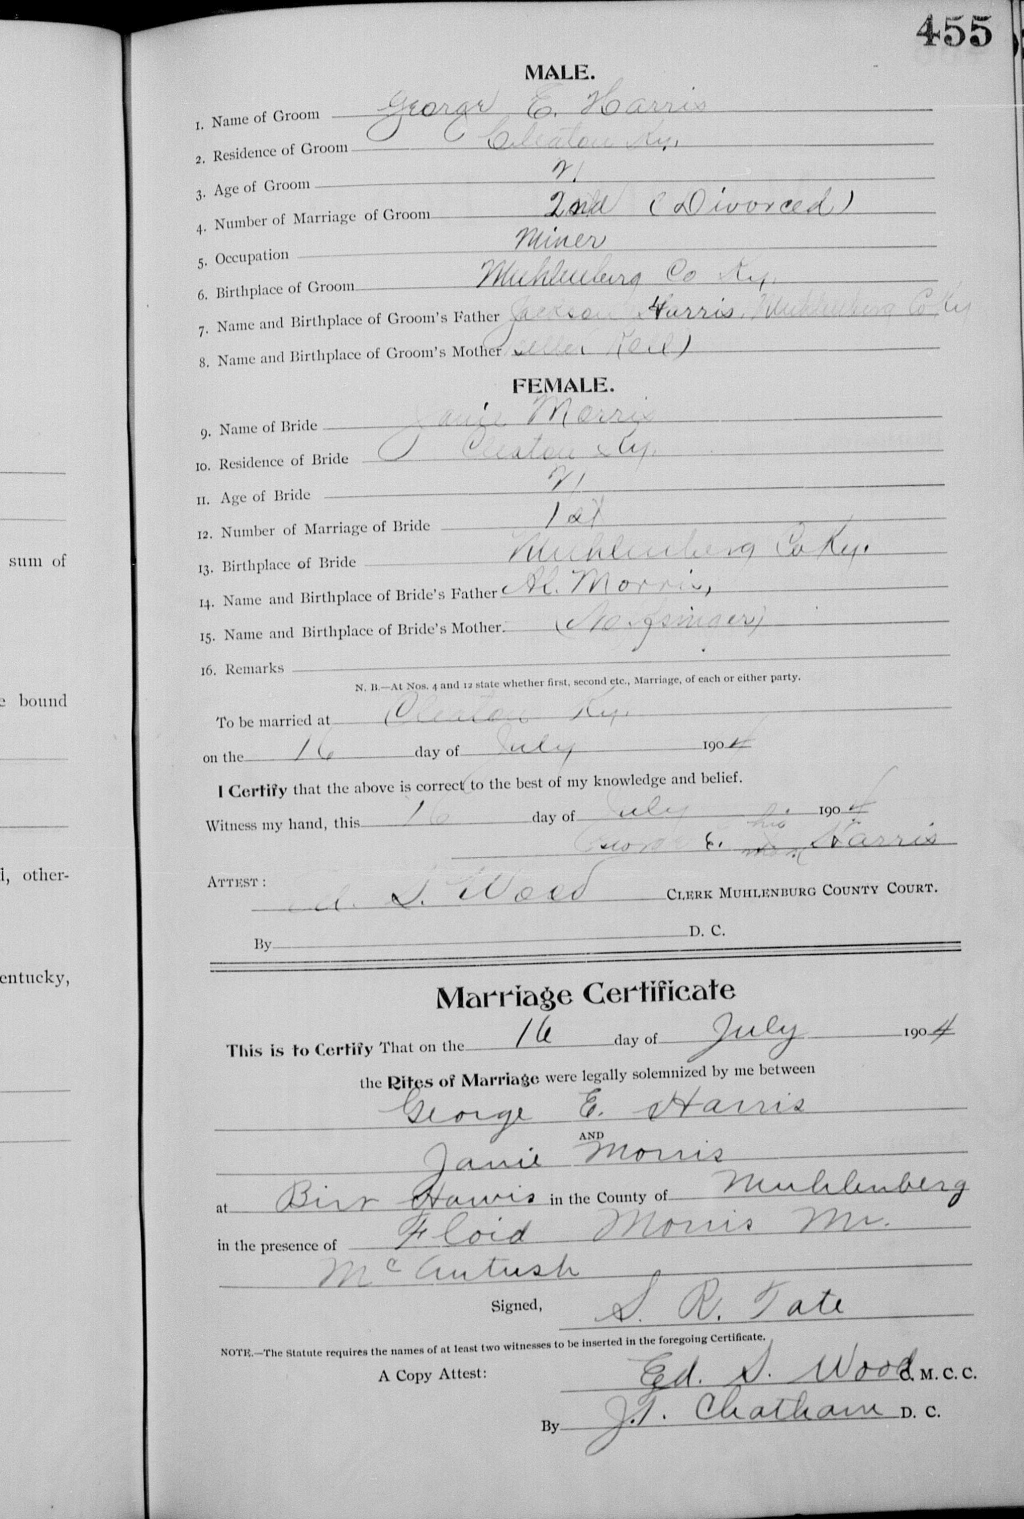 455
MALE.
1. Name of Groom George E. Harris
2. Residence of Groom Cleaton Ky.
3. Age of Groom 21
4. Number of Marriage of Groom 2nd (Divorced)
5. Occupation Miner
6. Birthplace of Groom Muhlenberg Co Ky.
7. Name and Birthplace of Groom's Father Jackson Harris, Muhlenberg Co Ky
8. Name and Birthplace of Groom's Mother
FEMALE.
9. Name of Bride Janie Morris
10. Residence of Bride Cleaton Ky.
11. Age of Bride 21
12. Number of Marriage of Bride 1st
13. Birthplace of Bride Muhlenberg Co Ky.
sum of
14. Name and Birthplace of Bride's Father Al. Morris,
15. Name and Birthplace of Bride's Mother.
16. Remarks
N. B.—At Nos. 4 and 12 state whether first, second etc., Marriage, of each or either party.
e bound
To be married at Cleaton Ky.
on the 16 day of July 1904
I Certify that the above is correct to the best of my knowledge and belief.
Witness my hand, this 16 day of July 1904
George E. his mark Harris
l, other-
ATTEST:
Ed. S. Wood CLERK MUHLENBURG COUNTY COURT.
By D. C.
entucky,
Marriage Certificate
This is to Certify That on the 16 day of July 1904
the Rites of Marriage were legally solemnized by me between
George E. Harris
AND
Janie Morris
at Harris in the County of Muhlenberg
in the presence of Floid Morris Mr.
Mc
Signed, S. R. Tate
NOTE.—The Statute requires the names of at least two witnesses to be inserted in the foregoing Certificate.
A Copy Attest: Ed. S. Wood C. M. C. C.
By J.T. Chatham D. C.